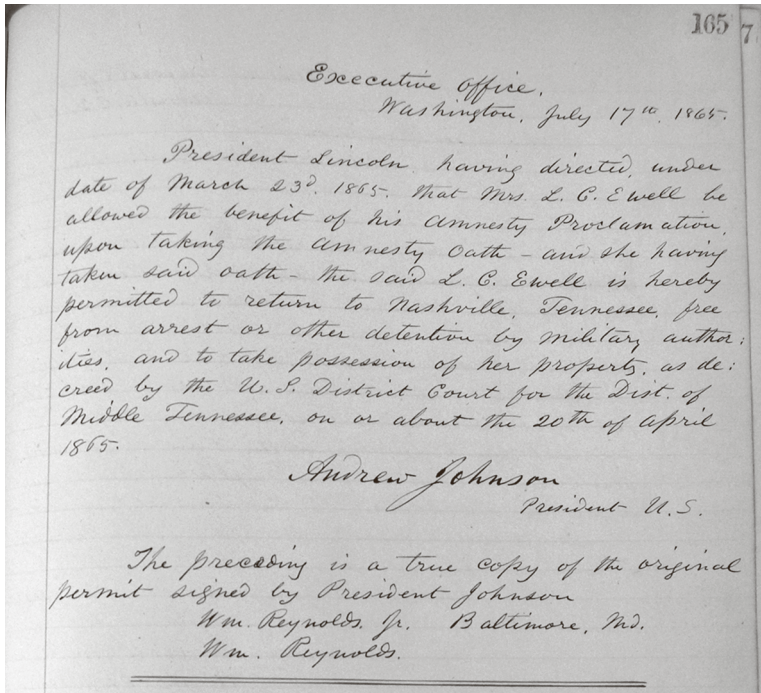 165
7
Executive Office,
Washington, July 17th, 1865.
President Lincoln having directed, under
date of March 23d, 1865, that Mrs. L. C. Ewell be
allowed the benefit of his Amnesty Proclamation,
upon taking the Amnesty Oath - and she having
taken said oath - the said L. C. Ewell is hereby
permitted to return to Nashville, Tennessee, free
from arrest or other detention by military author:
ities, and to take possession of her property, as de:
creed by the U. S. District Court for the Dist. of
Middle Tennessee, on or about the 20th of April
1865.
Andrew Johnson
President U. S.
The preceding is a true copy of the original
permit signed by President Johnson
Wm. Reynolds. Jr. Baltimore, Md.
Wm. Reynolds.